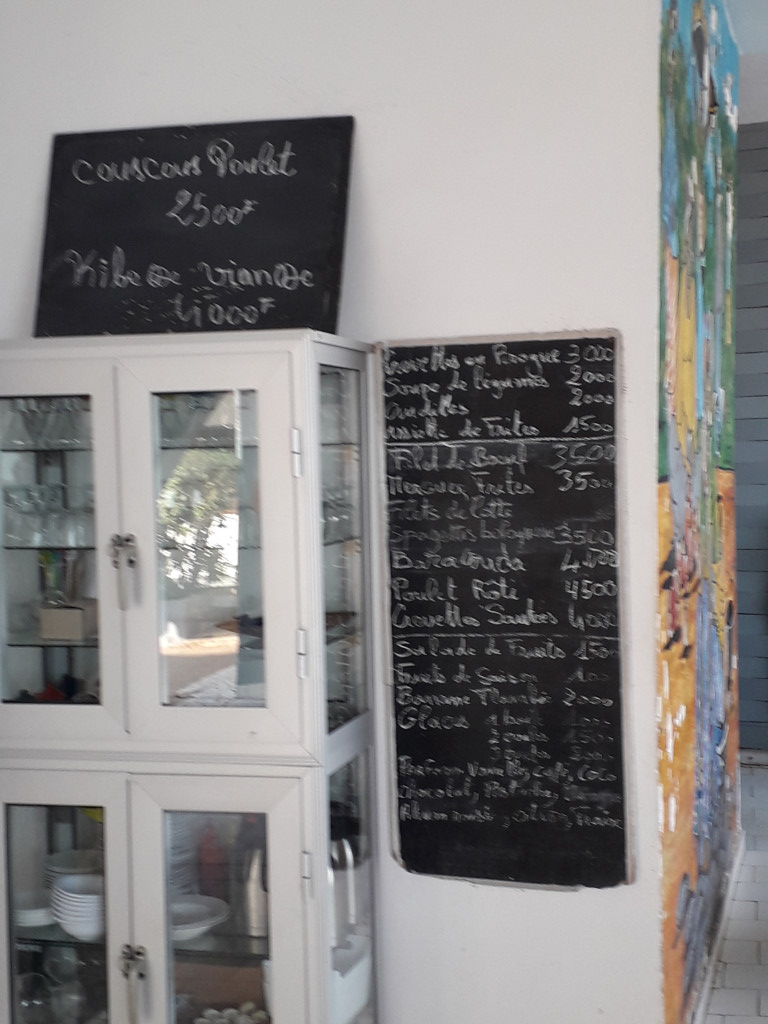 couscous Poulet
2500F
Kibe de viande
4000F
Crevettes en Pirogue 3000
Soupe de légumes 2000
2000
Assiette de Frites 1500
Filet de Boeuf 3500
Merguez Frites 3500
Filets de Lotte
Spagettis bolognaise 3500
Baracouda 4000
Poulet Rôti 4500
Crevettes Sautées 4000
Salade de Fruits 1500
Fruits de Saison
Banane Flambé 2000
Glaces 1 boule
2 boules 1500
3 boules
Parfum, Vanille, Café, Coco
Chocolat, Pistache,
citron, Fraise